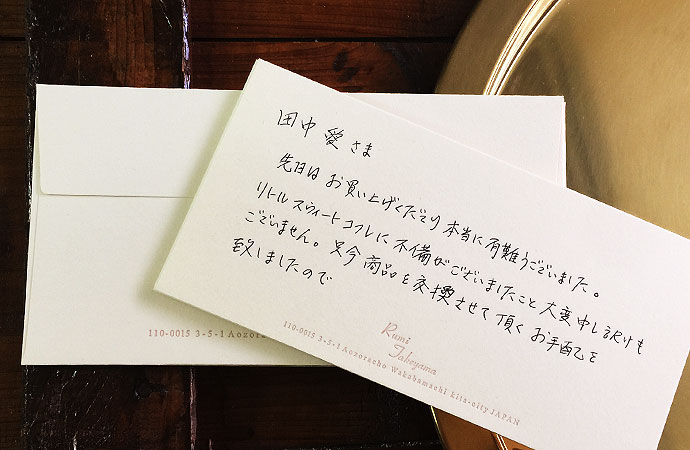 田中 愛 さま
先日は お買い上げくださり 本当に有難うございました。
リトル スウィート コフレに 不備がございましたこと 大変申し訳けも
ございません。只今 商品を交換させて 頂く お手配を
致しましたので
Rumi
Takeyama
110-0015 3-5-1 Aozoracho Wakabamachi kita-city JAPAN
110-0015 3-5-1 Aozora